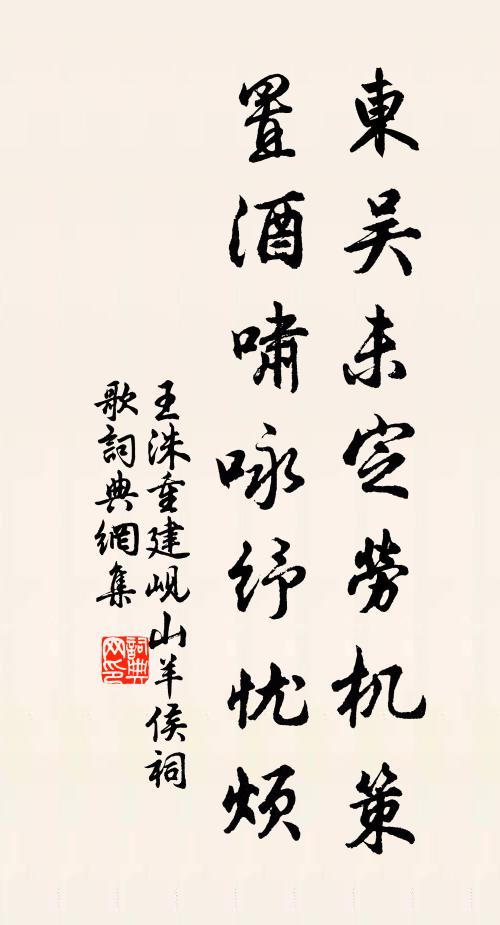 東吴未定劳机策
置酒啸咏纾忧烦
王洙重建岘山羊侯祠
歌詞典網集
詞典网印